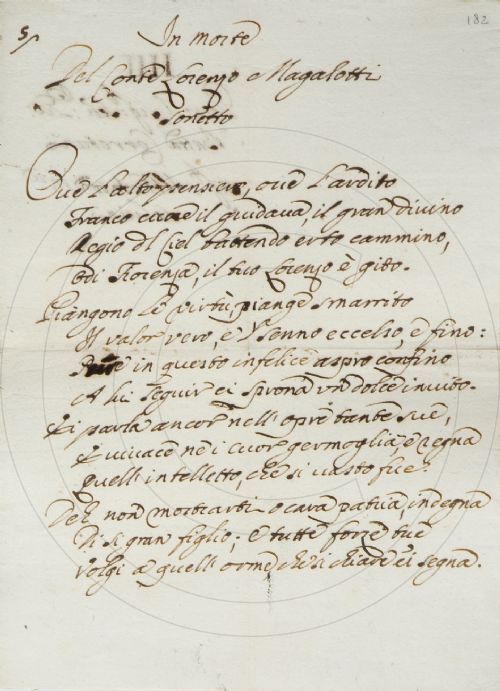 182
5
In morte
Del Conte Lorenzo Magalotti
Sonetto
Ove l'alto pensier, ove l'ardito
Franco cuore il guidava, il gran divino
Regio del Ciel battendo erto cammino,
Odi Fiorenza, il tuo Lorenzo è gito.
Piangono le virtù, piange smarrito
Il valor vero, e 'l senno eccelso, e fino:
in questo infelice aspro confino
A lui seguir ei sprona un dolce invito.
Ei parla ancor nell'opre tante sue,
E vivace ne i cuor germoglia, e regna
Quell'intelletto, che sì vasto fue.
Deh non mostrarti o cara patria indegna
Di sì gran figlio; e tutte forze tue
Volgi a quell'orme, ch'ei sì chiare ei segna.